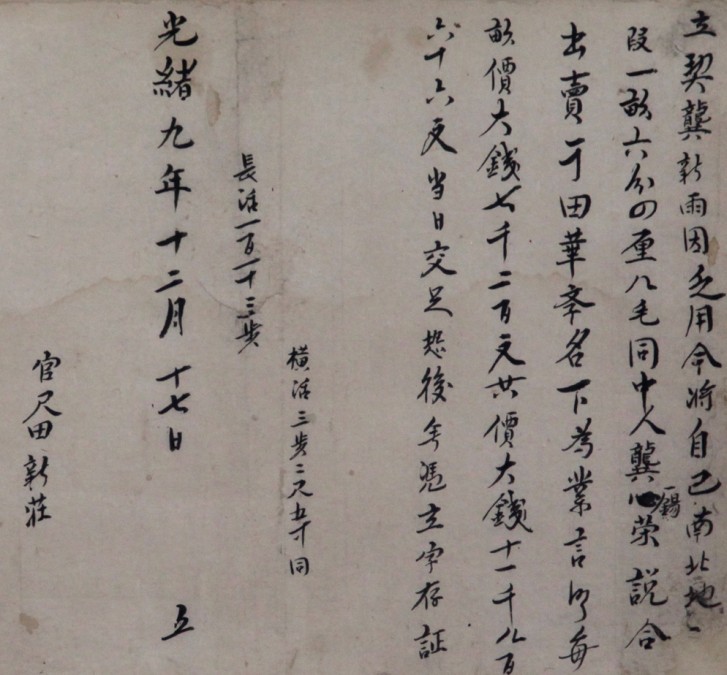 立契龔新雨因乏用今將自己南北地一
段一畝六分四厘八毛同中人龔錫荣說合
出賣于田華名下為業言明每
畝價大錢七千二百文共價大錢十一千八百
六十六文当日交足恐後無憑立字存証
橫活三步二尺五寸同
長活一百一十三步
光緒九年十二月十七日 立
官尺田新莊